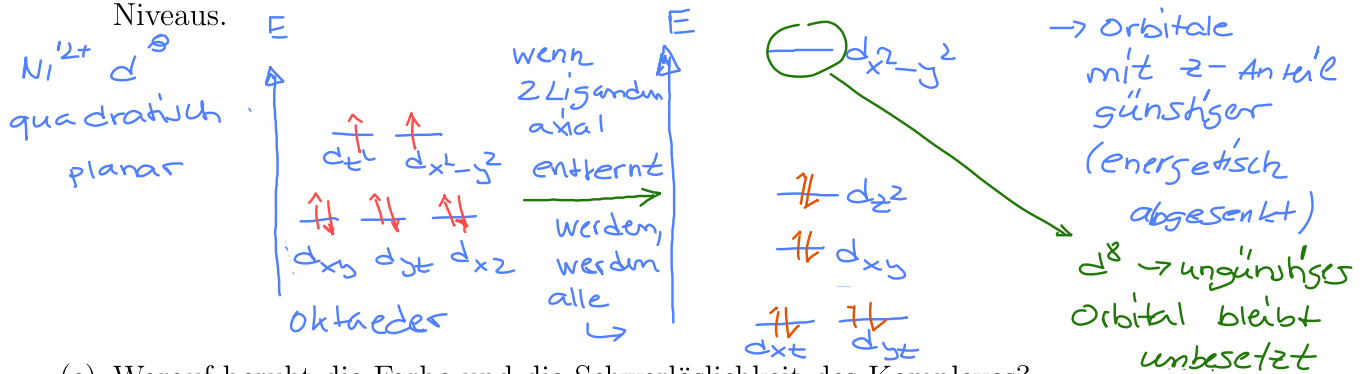 Niveaus.
Ni²⁺ d⁸
quadratisch
planar
E
dz² dx²-y²
dxy dyz dxz
Oktaeder
wenn
2 Liganden
axial
entfernt
werden,
werden
alle
↳
E
dx²-y²
dz²
dxy
dxz dyz
→ Orbitale
mit z-Anteil
günstiger
(energetisch
abgesenkt)
d⁸ → ungünstiges
Orbital bleibt
unbesetzt
Worauf beruht die Farbe und die Schwerlöslichkeit des Komplexes?